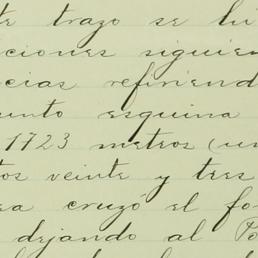 te trazo se hi
ciones siguien
cias refiriend
unto esquina
1723 metros (un
tos veinte y tres
sa cruzó el fo
dejando al Po